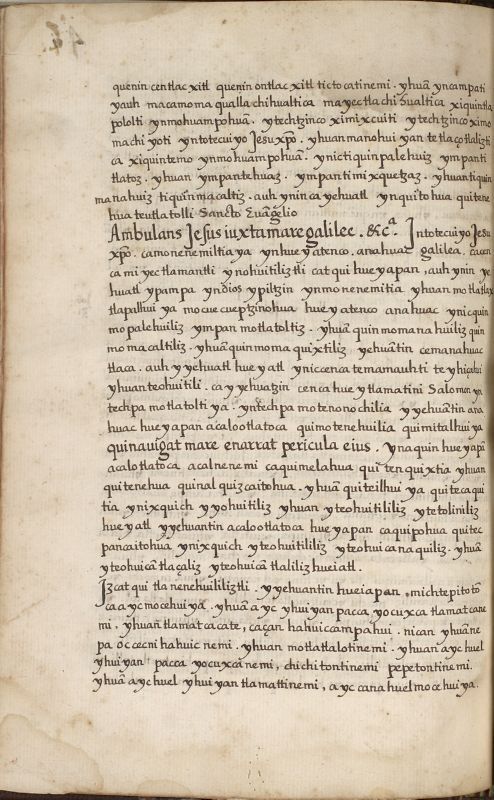 quenin centlac xitl quenin ontlac xitl tictocatinemi. yhuā yncampati
yauh macamoma qualla chihualtica mayectlachihualtica xiquintla
pololti ynmohuampohuā. ytechtzinco ximixcuiti ytechtzinco ximo
machiyoti yntotecuiyo Jesu xp̄o. yhuan manohuiyan tetlaçotlaliztli
ca xiquintemo ynmohuampohuā. ynictiquinpalehuiz ympanti
tlatoz. yhuan ympantehuaz. ympantimixquetzaz. yhuantiquin
manahuiz tiquinmacaltiz. auh ynin ca yehuatl ynquitohua quitene
hua teutlatolli Sancto Euāgelio
Ambulans Jesus iuxta mare galilee. &cª. Intotecuiyo Jesu
xp̄o. camonenemiltiaya ynhueyatenco. anahuac galilea. cacen
ca miyectlamantli ynohuitiliztli catqui hueyapan, auh ynin ye
huatl ypampa yndios ypiltzin ynmonenemitia yhuan motlatlax
tlapalhuiya mocuecueptzinohua hueyatenco anahuac ynicquin
mopalehuiliz ympan motlatoltiz. yhuā quinmomanahuiliz quin
momacaltiliz. yhuā quinmomaquixtiliz yehuātin cemanahuac
tlaca. auh yyehuatl hueyatl yniccenca temamauhti teyhiçahui
yhuan teohuitili. ca yyehuatzin cenca hueytlamatini Salomon yn
techpa motlatoltiya. yntechpa motenonochilia yyehuātin ana
huac hueyapan acalootlatoca quimotenehuilia quimitalhuiya
qui nauigat mare enarrat pericula eius. ynaquin hueyapā
acalotlatoca acalnenemi caquimelahua quitenquixtia yhuan
quitenehua quinalquizcaitohua. yhuā quiteilhuiya quitecaqui
tia ynixquich yyohuitiliz yhuan yteohuitililiz ytetoliniliz
hueyatl yyehuantin acalootlatoca hueyapan caquipohua quitec
pancaitohua ynixquich yteohuitililiz yteohuicanaquiliz. yhuā
yteohuicā tlaçaliz yteohuicā tlaliliz hueiatl.
Jzcatqui tlanenehuililiztli. yyehuantin hueiapan, michtepitotō
ca ayc mocehuiya. yhuā ayc yhuiyan pacca yocuxca tlamatcane
mi. yhuan tlamatcacate, caçan hahuiccampahui. nican yhuāne
pa occecni hahuicnemi. yhuan motlatlalotinemi. yhuan ayc huel
yhuiyan pacca yocuxcānemi, chichitontinemi pepetontinemi.
yhuā ayc huel yhuiyan tlamattinemi, ayc cana huel mocehuiya.